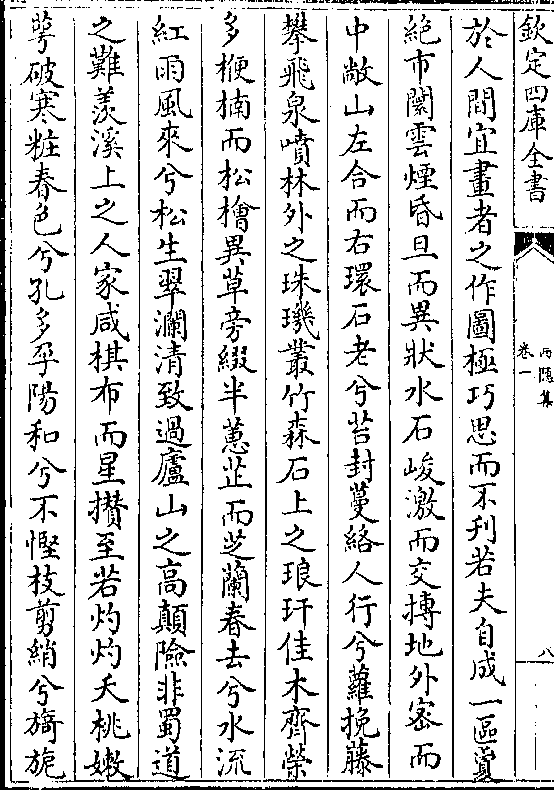 欽定四庫全書
西隱集
卷一
八
於人間宜畫者之作圖極巧思而不刋若夫自成一區敻
絶市闤雲煙昏旦而異狀水石峻激而交搏地外宻而
中敞山左合而右環石老兮苔封蔓絡人行兮蘿挽藤
攀飛泉噴林外之珠璣叢竹森石上之琅玕佳木齊榮
多楩楠而松檜異草旁綴半蕙芷而芝蘭春去兮水流
紅雨風來兮松生翠瀾清致過廬山之高顛險非蜀道
之難羡溪上之人家咸棋布而星攢至若灼灼夭桃嫩
萼破寒粧春色兮孔多孚陽和兮不慳枝剪綃兮旖旎